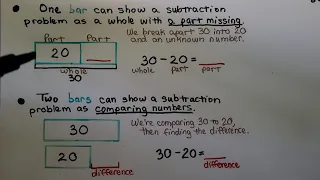 • One bar can show a subtraction
problem as a whole with a part missing.
Part Part
20 __
whole
30
We break apart 30 into 20
and an unknown number.
30 - 20 = __
whole part part
• Two bars can show a subtraction
problem as comparing numbers.
30
20
difference
We're comparing 30 to 20,
then finding the difference.
30 - 20 = __
difference